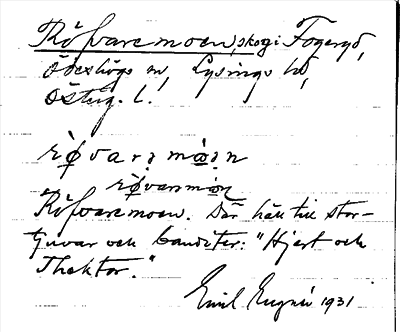 Röfvaremoen, skog i Fogeryd,
Ödeshögs sn, Lysings hd,
Östug. l.
rö̀varə mɷ̀ən
rö̀varmɷ̀n
Röfvaremoen. Där höll till stor-
tjuvar och banditer: "Hjert och
Thektor."
Emil 1931